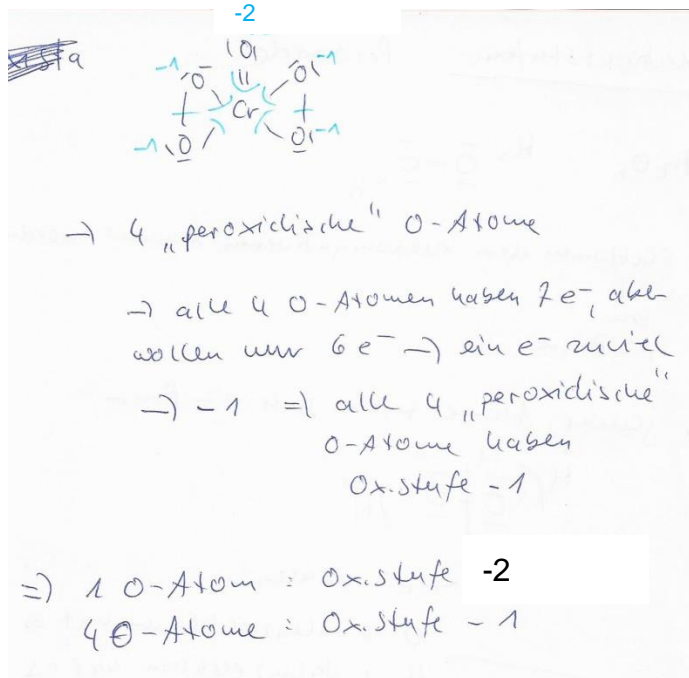 -2
|O|
-1 O O -1
Cr
-1 O O -1
→ 4 „peroxidische" O-Atome
→ alle 4 O-Atomen haben 7 e⁻, aber
wollen nur 6 e⁻ → ein e⁻ zuviel
→ -1 ⇒ alle 4 „peroxidische"
O-Atome haben
Ox.stufe -1
⇒ 1 O-Atom : Ox.stufe -2
4 O-Atome : Ox.stufe -1